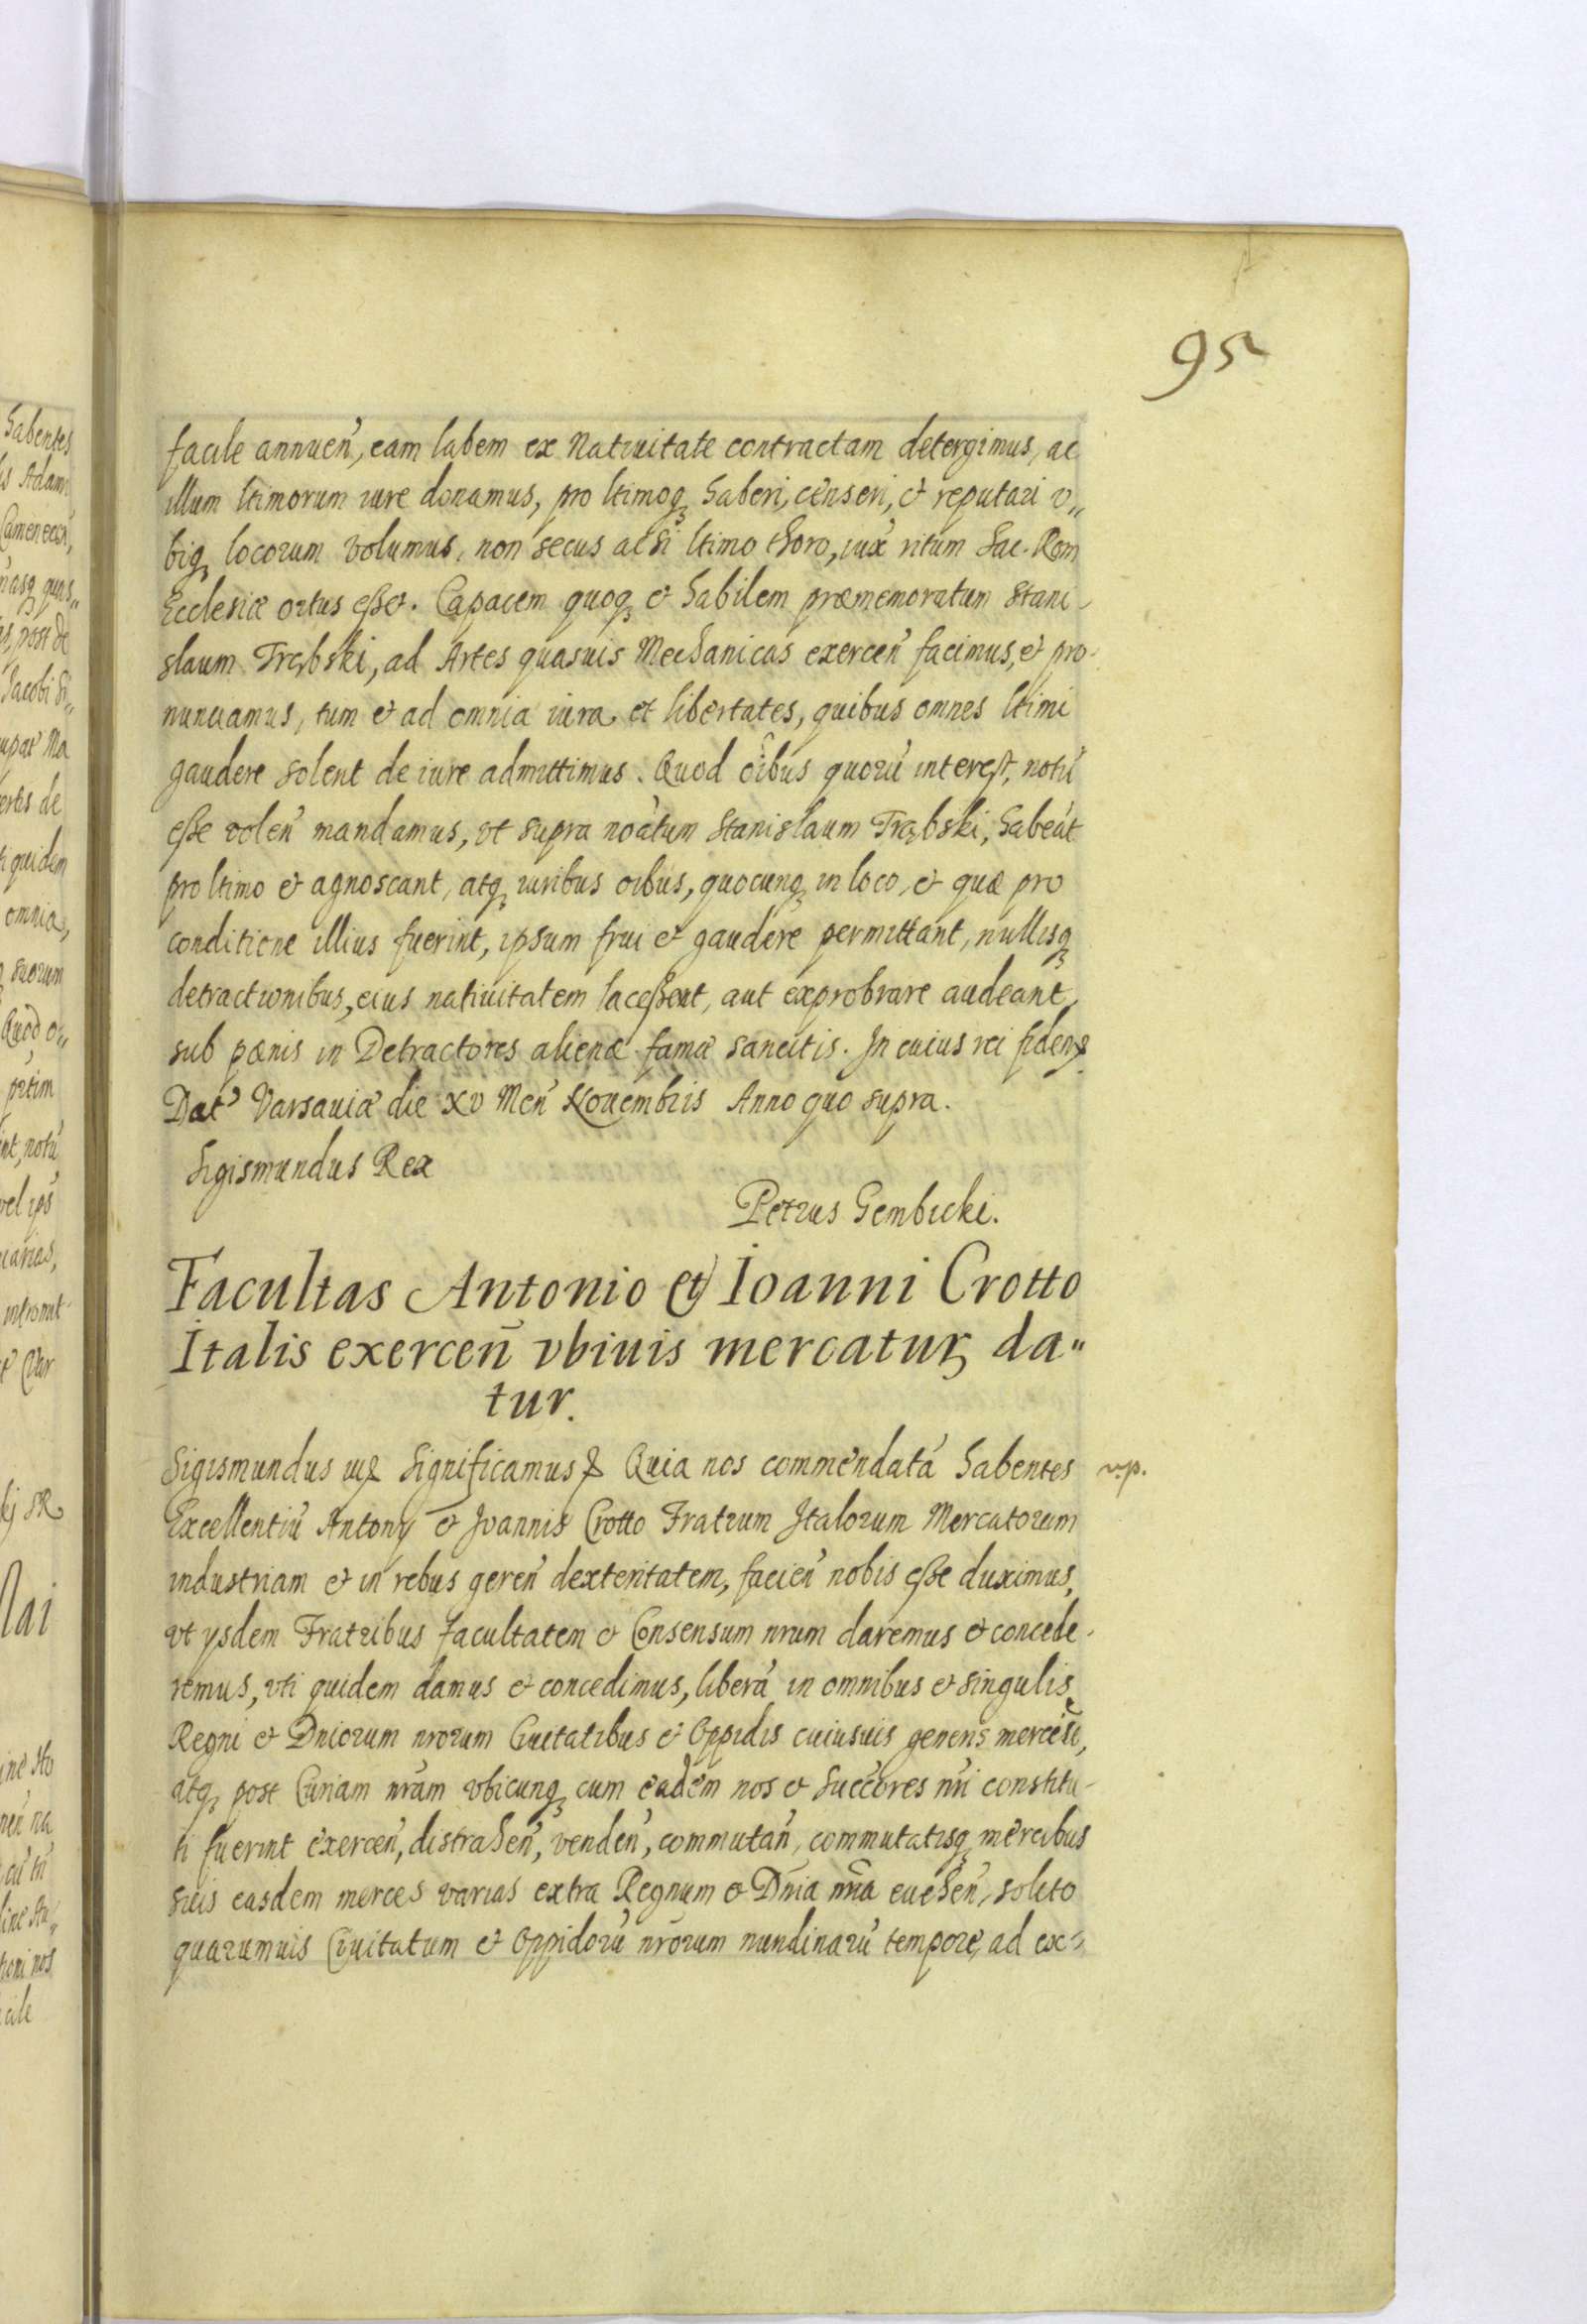 95
facile annuen̄, eam labem ex Natiuitate contractam detergimus, ac
illum ltimorum iure donamus, pro ltimoq₃ haberi, censeri, et reputari v„
biq₃ locorum volumus, non secus acsi ltimo thoro, iux̄ ritum Sac. Rom
Ecclesiæ ortus eßet. Capacem quoq₃ et habilem præmemoratum Stani-
slaum Trąbski, ad Artes quasuis Mechanicas exercen̄ facimus, et pro-
nunciamus, tum et ad omnia iura et libertates, quibus omnes ltimi
gaudere solent de iure admittimus. Quod oībus quorū interest, notū
eße volen̄ mandamus, vt supra noātum Stanislaum Trąbski, habeāt
pro ltimo et agnoscant, atq₃ iuribus oibus, quocunq₃ in loco, et quæ pro
conditione illius fuerint, ipsum frui et gaudere permittant, nullisq₃
detractionibus, eius natiuitatem laceßent, aut exprobrare audeant,
sub pœnis in Detractores alienæ famæ sancitis. In cuius rei fidem &
Dat̄ Varsauiæ die xv Men̄ Nouembris Anno quo supra.
Sigismundus Rex
Petrus Gembicki.
Facultas Antonio et Ioanni Crotto
Italis exercen̄ vbiuis mercatur₃ da"
tur.
Sigismundus iii & Significamus & Quia nos commendatā habentes
Excellentiū Antony et Joannis Crotto Fratrum Italorum Mercatorum
industriam et in rebus geren̄ dexteritatem, facien̄ nobis eße duximus,
vt ysdem Fratribus facultatem et Consensum nrum daremus et concede-
remus, vti quidem damus et concedimus, liberā in omnibus et singulis
Regni et Dniorum nrorum Ciuitatibus et Oppidis cuiusuis generis
atq₃ post Curiam nram vbicunq₃ cum eadem nos et Succores nri constitu-
ti fuerint exercen̄, distrahen̄, venden̄, commutan̄, commutatisq₃ mercibus
suis easdem merces varias extra Regnum et Dn̄ia nr̄a euehen̄, solito
quarumuis Ciuitatum et Oppidorū nrōrum nundinarū tempore, ad ex=